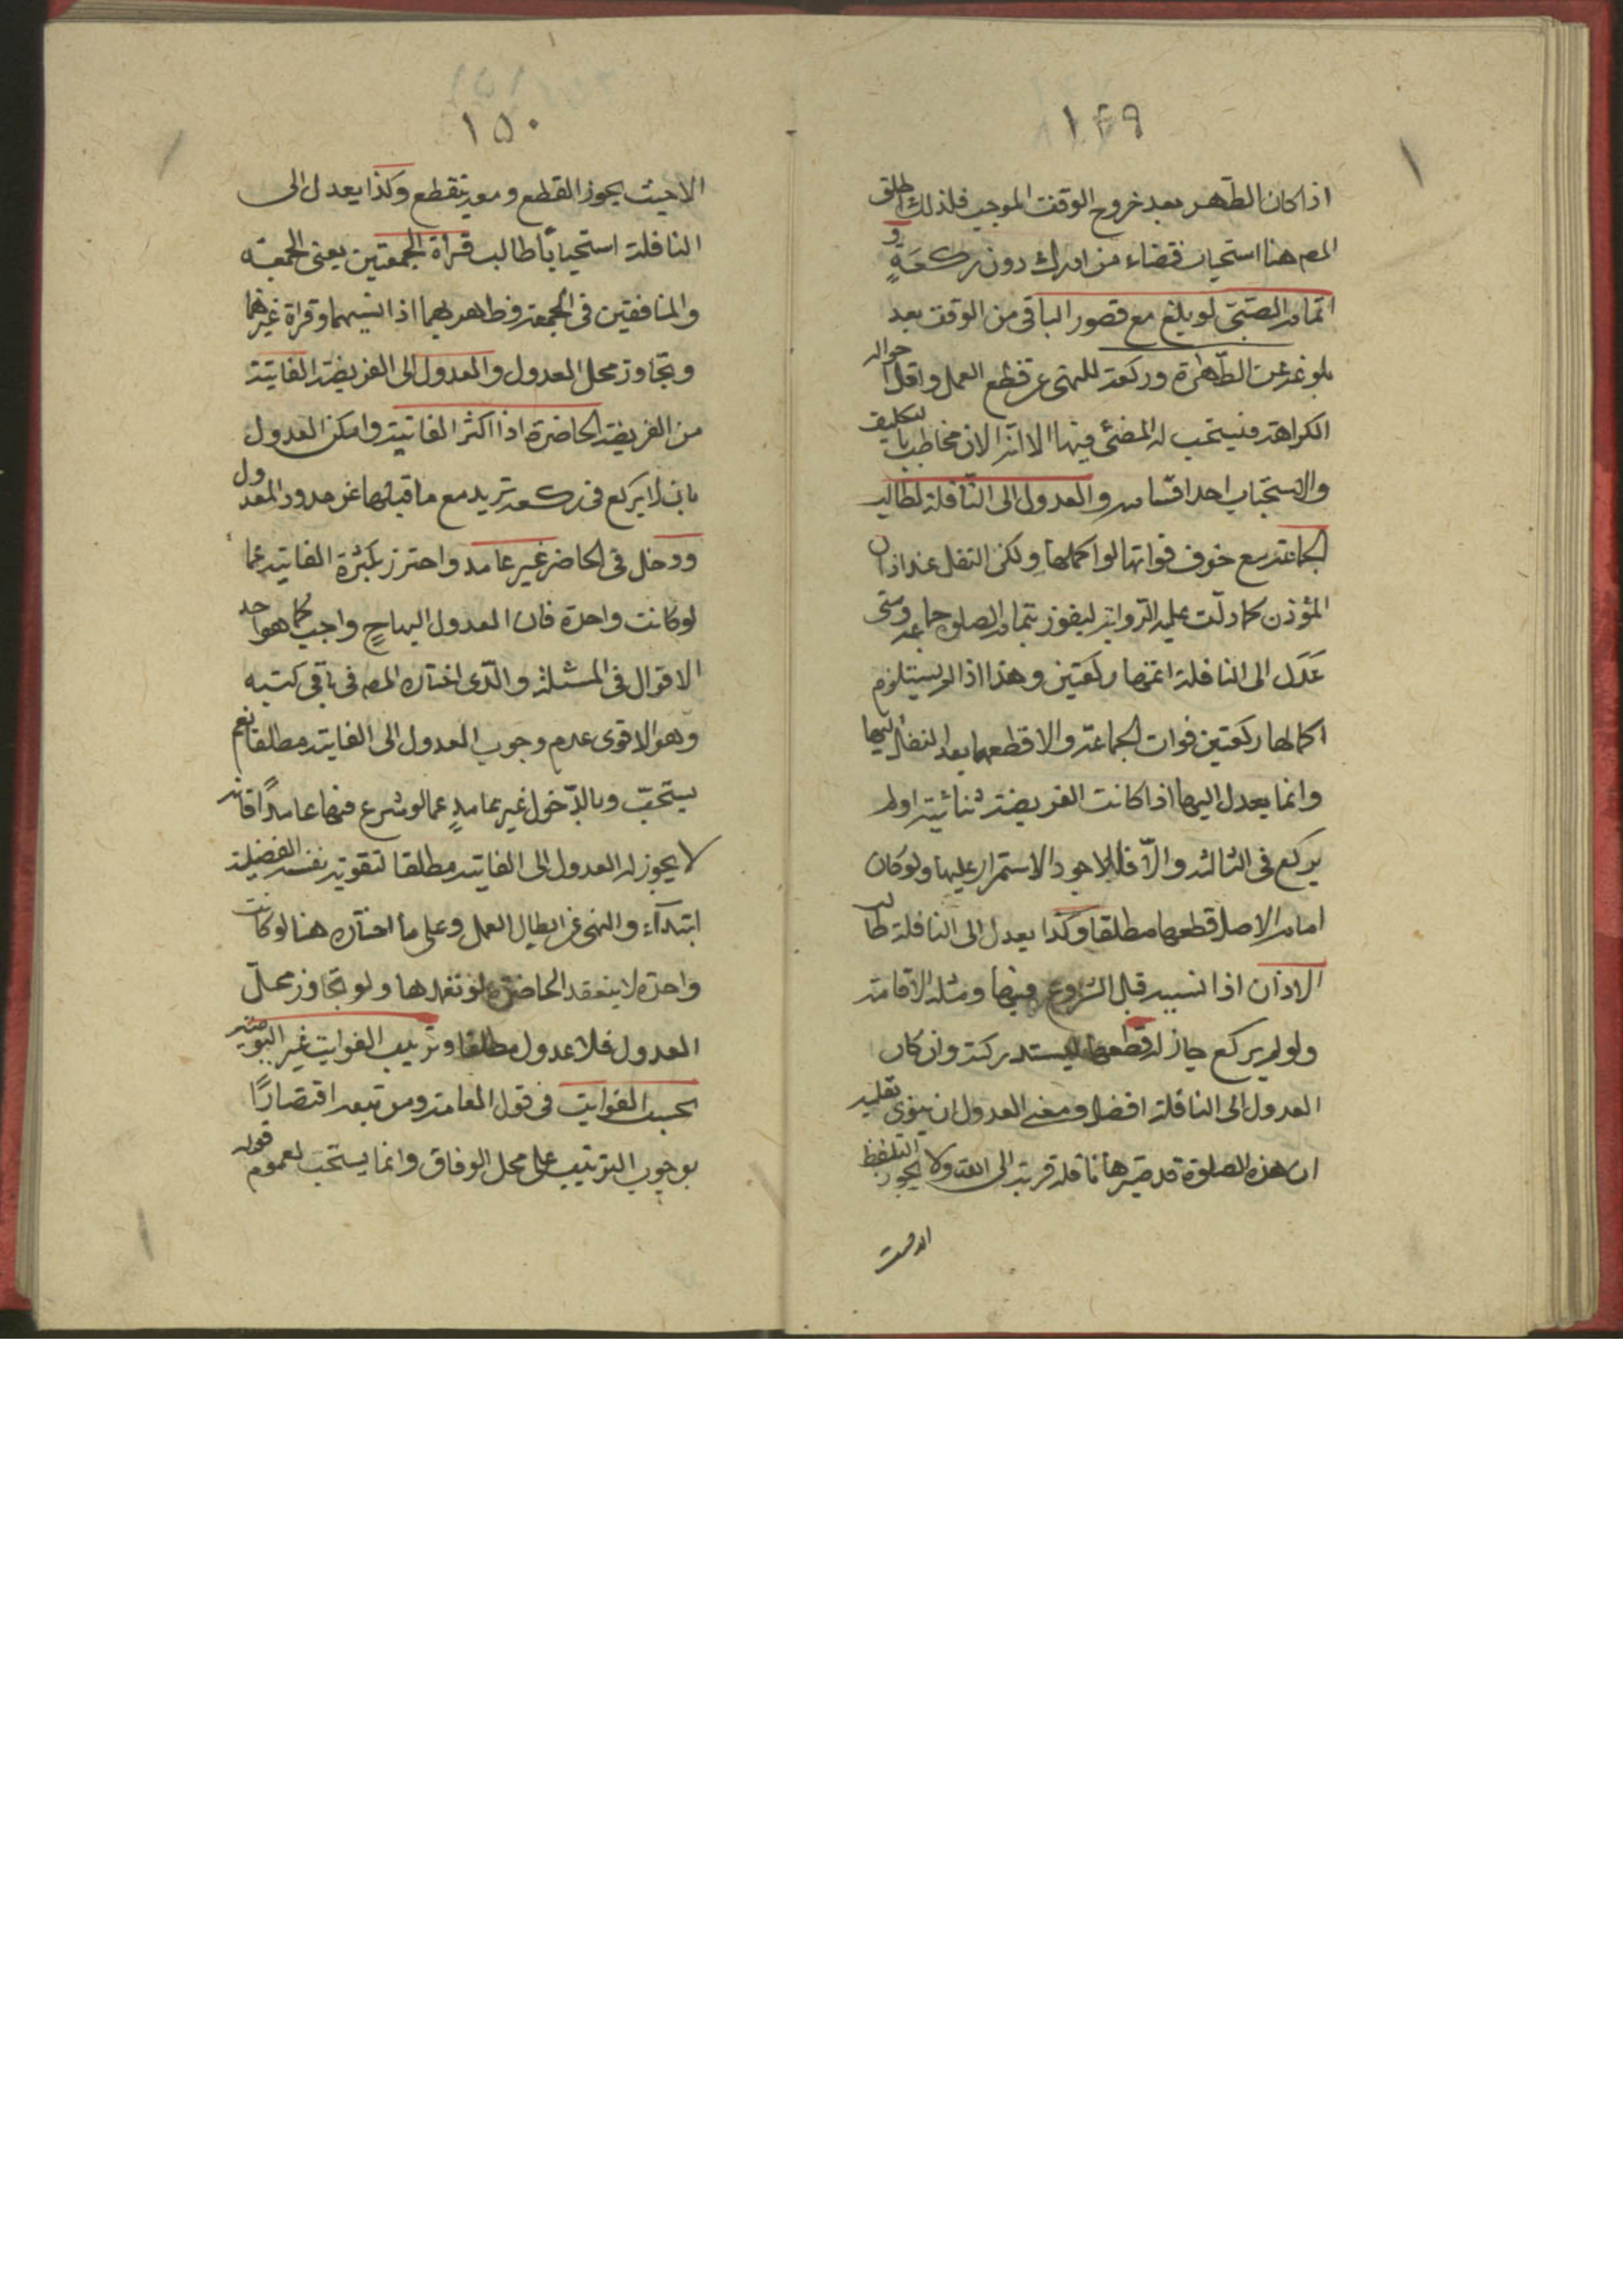 ١٤٩
اذا كان الطهر بعد خروج الوقت الموجب فلذلك اطلق
المص هنا استحباب قضاء من ادرك دون ركعةٍ و
اتمام الصبىّ لو بلغ مع قصور الباقى من الوقت بعد
بلوغه عن الطّهارة وركعة للنهى عن قطع العمل واقل احواله
الكراهة فيستحب له المضىّ فيها الا انّه الان مخاطب بالتكليف
والاستحباب احد اقسامه والعدول الى النّافلة لطالب
الجماعة مع خوف فواتها لو اكملها وليكن النفل عند اذان
المؤذن كما دلّت عليه الرّواية ليفوز بتمام الصلوة جماعة ومتى
عَدَل الى النافلة اتمّها ركعتين وهذا اذا لم يستلزم
اكمالها ركعتين فوات الجماعة والا قطعها بعد النقل اليها
وانما يعدل اليها اذا كانت الفريضة ثنائية او لم
يركع فى الثالثة والّا فالاجود الاستمرار عليها ولو كان
امام الاصل قطعها مطلقا وكذا يعدل الى النافلة طالب
الاذان اذا نسيه قبل الشروع فيها ومثله الاقامة
ولو لم يركع جاز له قطعها ليستدركه وان كان
العدول الى النافلة افضل ومعنى العدول ان ينوى بقلبه
ان هذه الصلوة قد صيرها نافلة قربة الى الله ولا يجوز التلفظ
١٥٠
الا حيث يجوز القطع ومعه ينقطع وكذا يعدل الى
النافلة استحبابًا طالب قرأة الجمعتين يعنى الجمعة
والمنافقين فى الجمعة وظهر بهما اذا نسيهما وقراة غيرهما
وتجاوز محل العدول والعدول الى الفريضة الفايتة
من الفريضة الحاضرة اذا اكثر الفايتة وامكن العدول
بان لا يركع فى ركعة تزيد مع ما قبلها عن حدود المعدول
ودخل فى الحاضر غير عامد واحترز بكثرة الفايتة عما
لو كانت واحدة فان العدول اليها ح واجب كما هو احد
الاقوال فى المسئلة والّذى اختاره المص فى باقى كتبه
وهو الاقوى عدم وجوب العدول الى الفايتة مطلقا نعم
يستحبّ وبالدّخول غير عامدٍ عما لو شرع فيها عامدًا فانه
لا يجوز له العدول الى الفايتة مطلقا لتفويته نفسه الفضيلة
ابتدآء والنهى عن ابطال العمل وعلى ما اختاره هنا لو كانت
واحدة لا ينعقد الحاضرة لو تعمدها ولو تجاوز محلّ
العدول فلا عدول مطلقا وترتيب الفوايت غير اليومية
بحسب الفوايت فى قول العلامة ومن تبعه اقتصارًا
بوجوب الترتيب على محل الوفاق وانما يستحب لعموم قوله